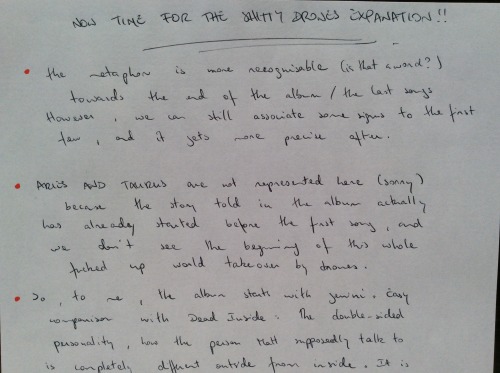 NOW TIME FOR THE SHITTY DRONES EXPANATION!!
• the metaphor is more recognisable (is that a word?)
towards the end of the album / the last songs
However, we can still associate some signs to the first
few, and it gets more precise after.
• ARIES AND TAURUS are not represented here (sorry)
because the story told in the album actually
has already started before the first song, and
we don't see the beginning of this whole
fucked up world takeover by drones.
• So, to me, the album starts with gemini. Easy
comparison with Dead Inside: The double-sided
personality, how the person Matt supposedly talk to
is completely different outside from inside. It is